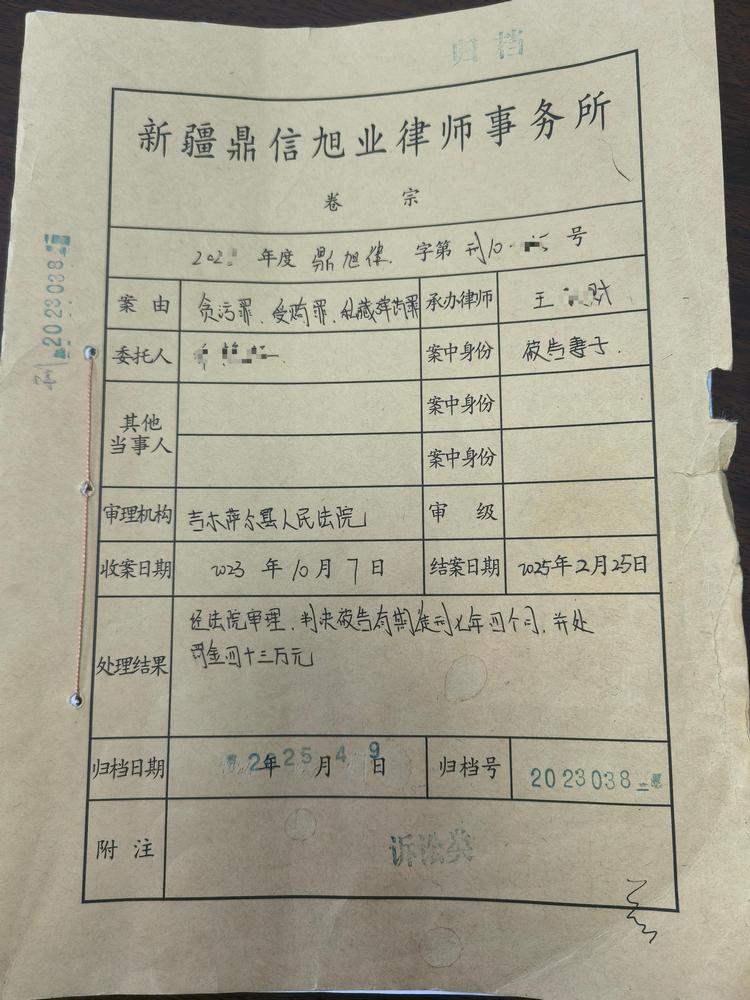 归档
新疆鼎信旭业律师事务所
卷 宗
202 年度 鼎旭律 字第 刑10- 号
案由 贪污罪、受贿罪、私藏弹药罪 承办律师 王 财
委托人 案中身份 被告妻子.
其他当事人 案中身份
案中身份
审理机构 吉木萨尔县人民法院 审级
收案日期 2023 年 10 月 7 日 结案日期 2025年2月25日
处理结果 经法院审理、判决被告有期徒刑七年四个月,并处
罚金四十三万元
归档日期 2025 年 4 月 9 日 归档号 2023038
附注 诉讼类
2023038
刑